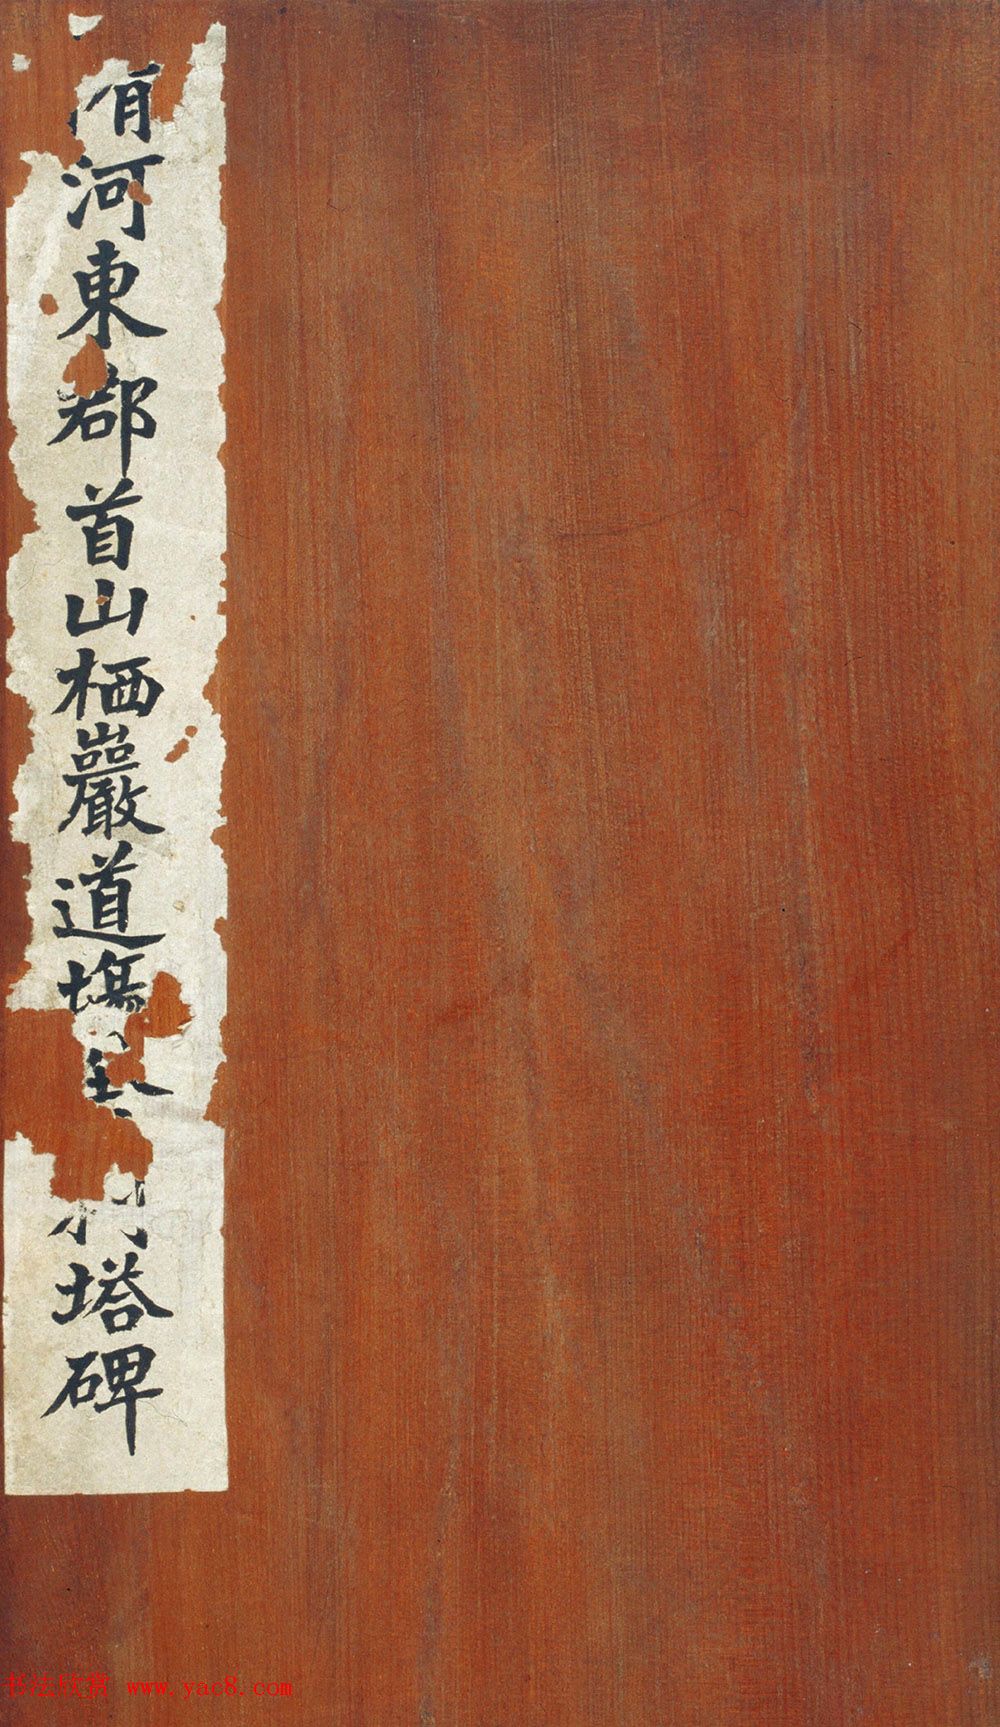 隋河東郡首山栖巖道場舍利塔碑
书法欣赏 www.yac8.com